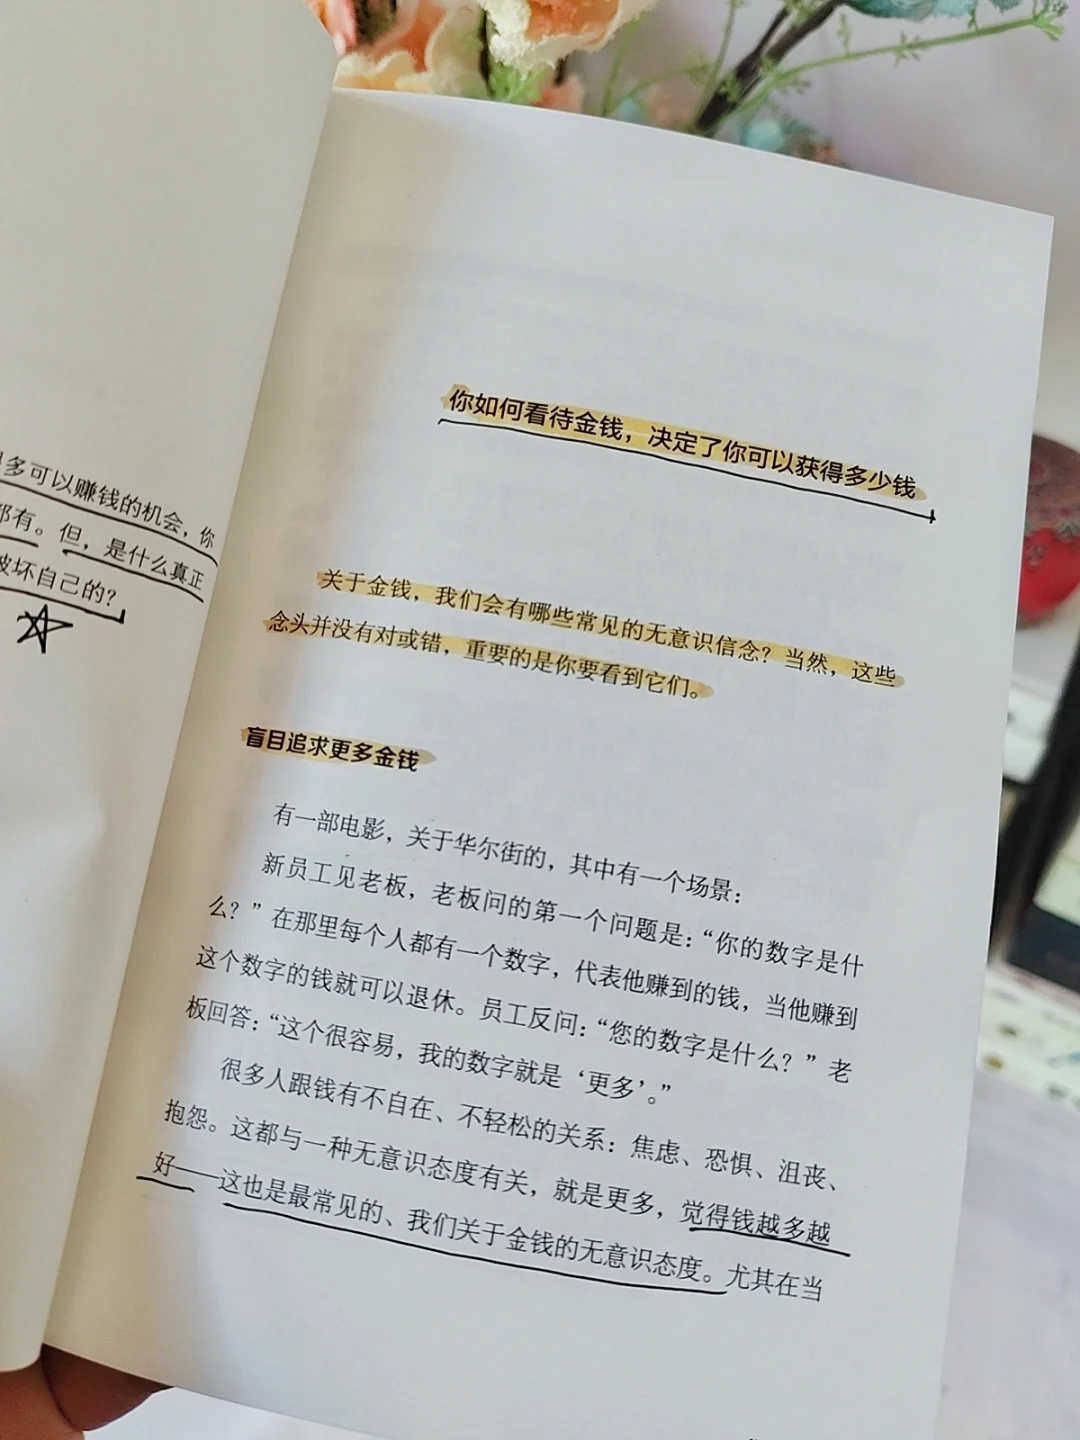 多可以赚钱的机会，你
都有。但，是什么真正
破坏自己的？
你如何看待金钱，决定了你可以获得多少钱
关于金钱，我们会有哪些常见的无意识信念？当然，这些
念头并没有对或错，重要的是你要看到它们。
盲目追求更多金钱
有一部电影，关于华尔街的，其中有一个场景：
新员工见老板，老板问的第一个问题是：“你的数字是什
么？”在那里每个人都有一个数字，代表他赚到的钱，当他赚到
这个数字的钱就可以退休。员工反问：“您的数字是什么？”老
板回答：“这个很容易，我的数字就是‘更多’。”
很多人跟钱有不自在、不轻松的关系：焦虑、恐惧、沮丧、
抱怨。这都与一种无意识态度有关，就是更多，觉得钱越多越
好——这也是最常见的、我们关于金钱的无意识态度。尤其在当